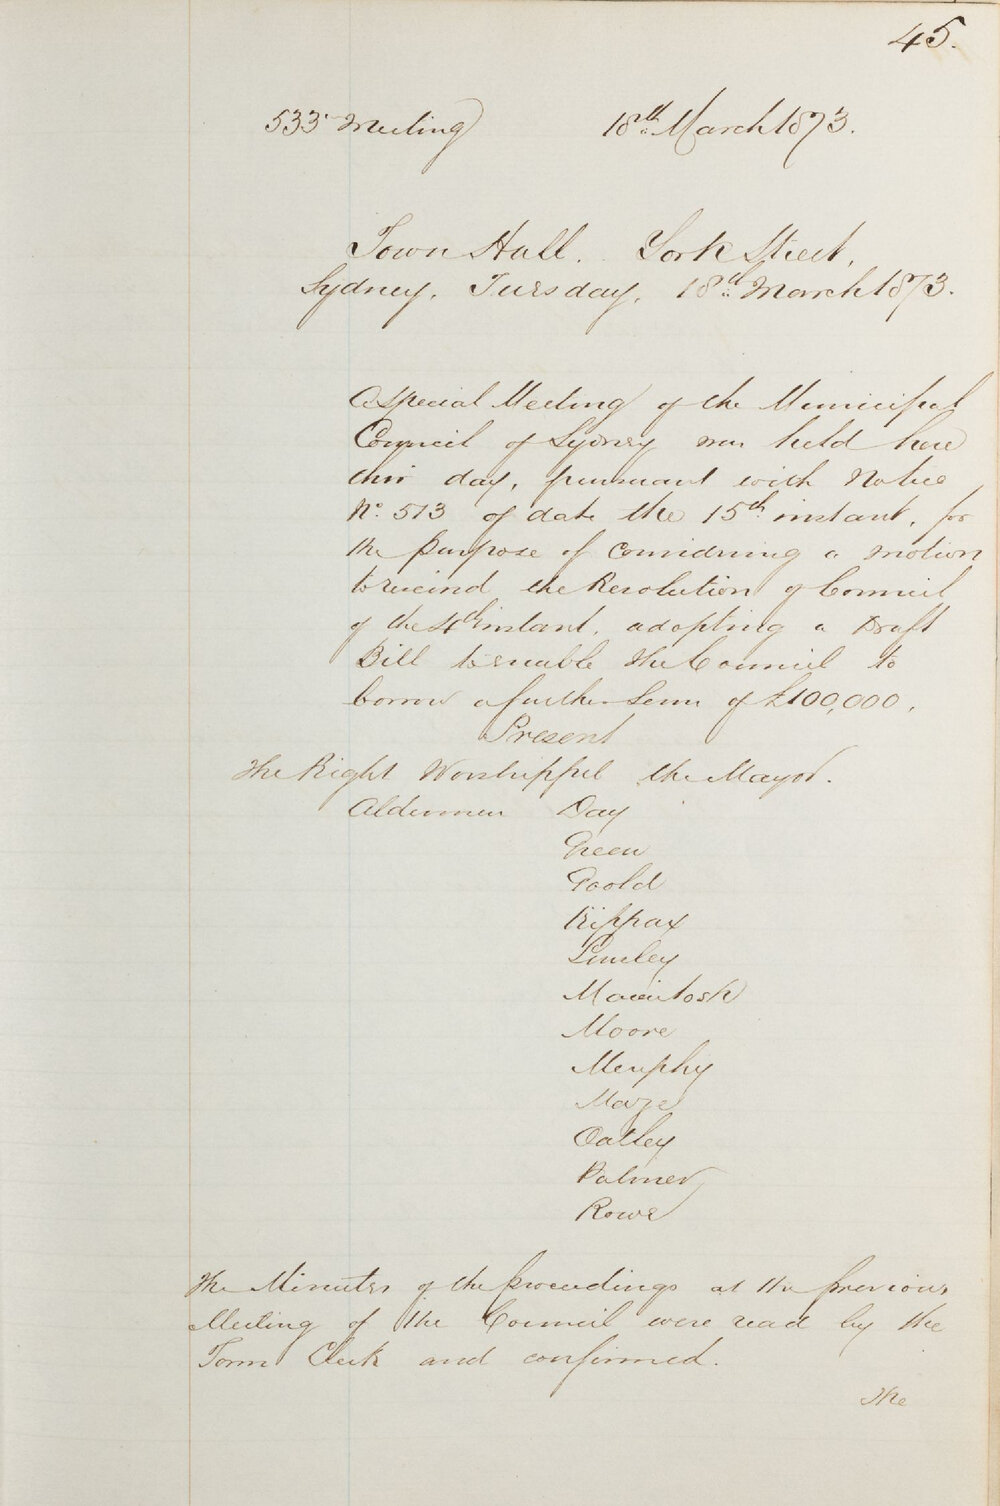 45.
533rd Meeting 18th March 1873.
Town Hall. York Street,
Sydney, Tuesday, 18th March 1873.
A Special Meeting of the Municipal
Council of Sydney was held here
this day, pursuant with Notice
No. 513 of date the 15th instant, for
the purpose of considering a motion
to rescind the Resolution of Council
of the 4th instant, adopting a Draft
Bill to enable the Council to
borrow a further Sum of £100,000.
Present
The Right Worshipful the Mayor.
Aldermen Day
Green
Goold
Kippax
Linsley
Macintosh
Moore
Murphy
Maze
Oatley
Palmer
Rowe
The Minutes of the proceedings at the previous
Meeting of the Council were read by the
Town Clerk and confirmed.
The